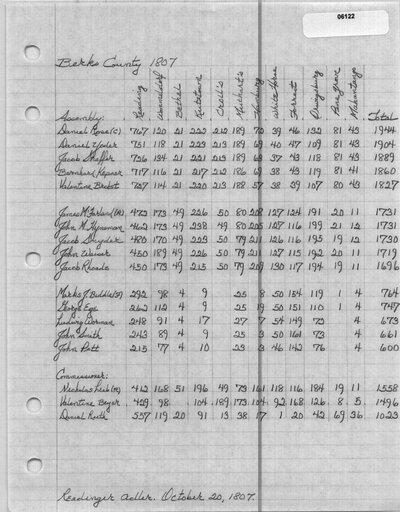 06122
Berks County 1807
Reading Womelsdorf Bethel Kutztown Croll's Hamburg White Horse Forrest Pine Grove Mahantongo
Assembly: Total
Daniel Rose (C) 767 120 21 222 212 189 70 39 46 132 81 43 1944
Daniel Yoder 751 118 21 223 213 189 69 40 47 109 83 43 1904
Jacob Shaffer 756 134 21 221 213 189 63 37 43 118 81 43 1889
Bernhard Kepner 717 116 21 217 212 186 69 38 43 119 81 41 1860
Valentine Probst 737 114 21 220 213 188 57 38 39 107 80 43 1827
James McFarland (R) 473 173 49 226 50 80 208 127 124 191 20 11 1731
John M. Hyneman 462 173 49 238 49 80 205 127 116 199 21 12 1731
Jacob Snyder 480 170 49 223 50 79 211 126 116 195 19 12 1730
John Weaver 450 189 49 226 50 79 211 127 115 192 20 11 1719
Jacob Rhoads 450 173 49 215 50 79 209 130 117 194 19 11 1696
Marks J. Biddle 292 98 4 9 25 8 50 154 119 1 4 764
George Ege 262 112 4 9 25 19 50 151 110 1 4 747
Ludwig Worman 248 91 4 17 27 7 54 149 73 4 673
John Smith 243 89 4 9 25 3 50 161 73 4 661
John Pott 215 77 4 10 23 3 46 142 76 4 600
Commissioner:
Nicholas Leib (R) 412 168 51 196 49 73 161 118 116 184 19 11 1558
Valentine Boyer 429 98 104 189 173 104 92 168 126 8 5 1496
Daniel Roth 557 119 20 91 13 38 17 1 20 42 69 36 1023
Readinger Adler. October 20, 1807.